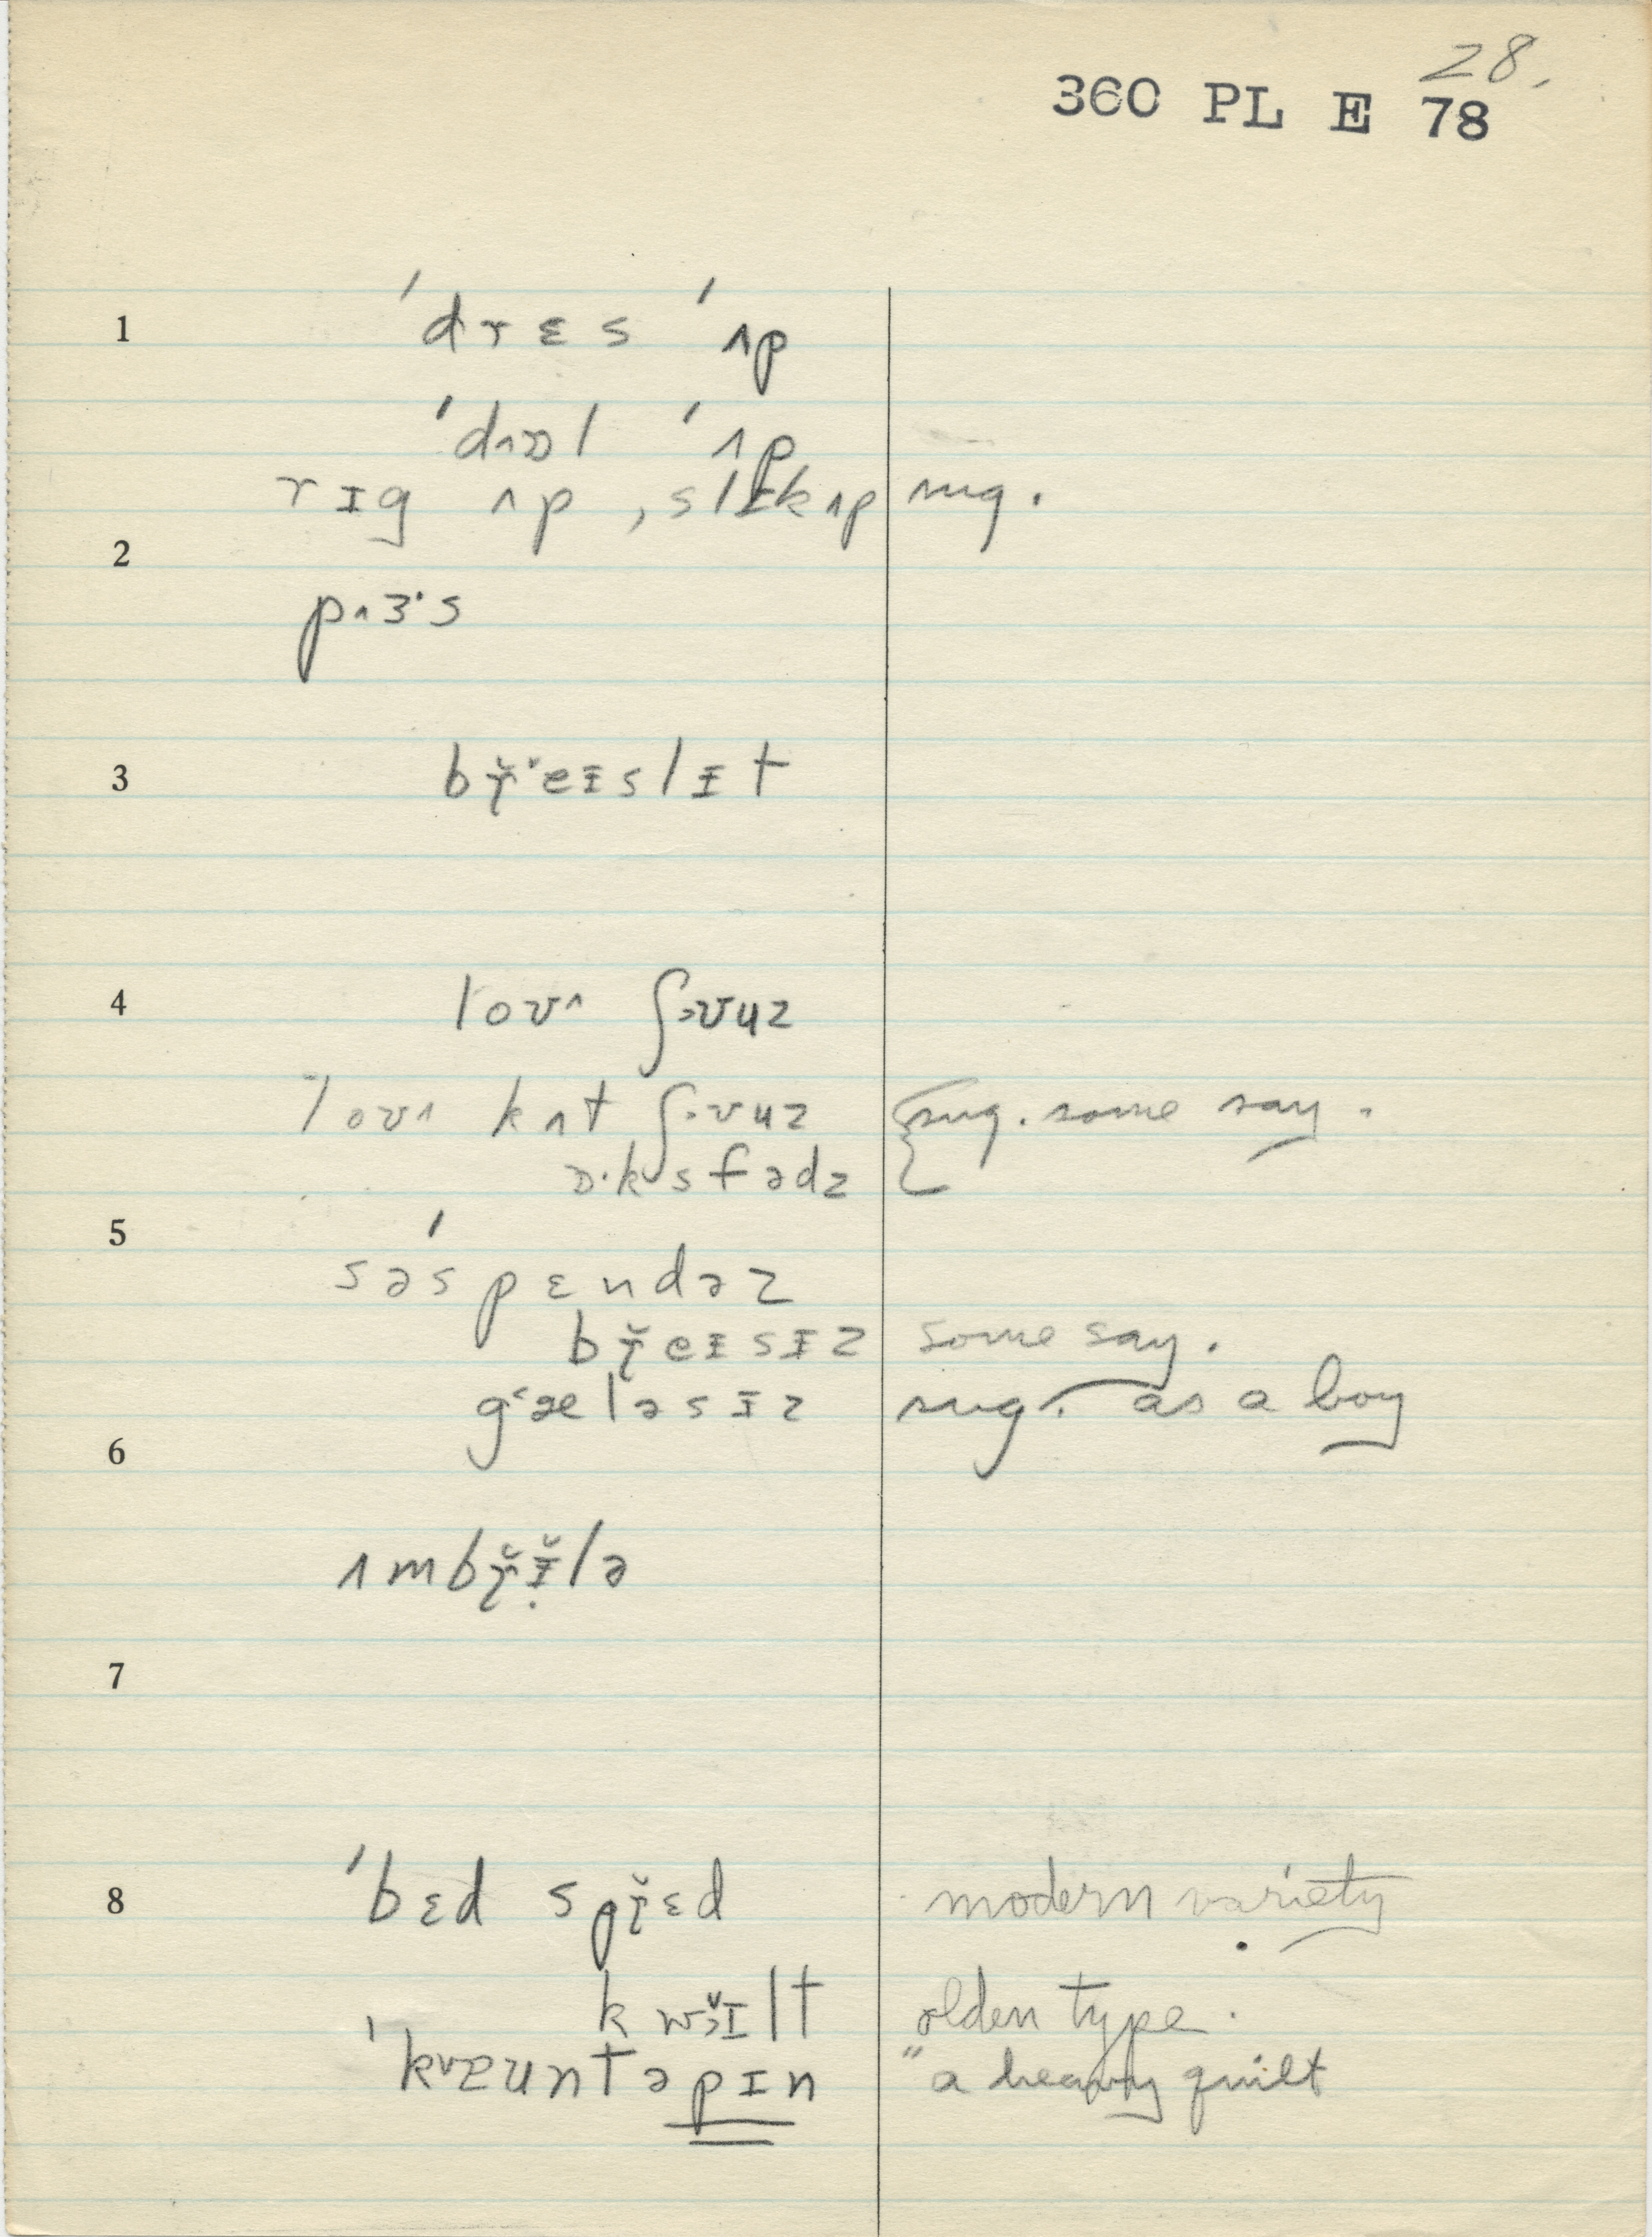 28.
360 PL E 78
1
ˈdrɛs ˈʌp
ˈdʌɒl ˈʌp
rɪg ʌp, slɪkʌp sug.
2
pʌɜ·s
3
bɾ̥̆ˈeɪslɪt
4
loʊʌ ʃəʊuz
loʊʌ kʌt ʃəʊuz sug. some say.
ɒ·ksfədz
5
səˈspɛndəz
bɾ̥̆eɪsɪz some say.
gˈæləsɪz sug. as a boy
6
ʌmbɾ̥̆ɪ̆lə
7
8
ˈbɛd spɾ̥̆ɛd modern variety
kwɪlt olden type.
ˈkæuntəpɪn "a heavy quilt